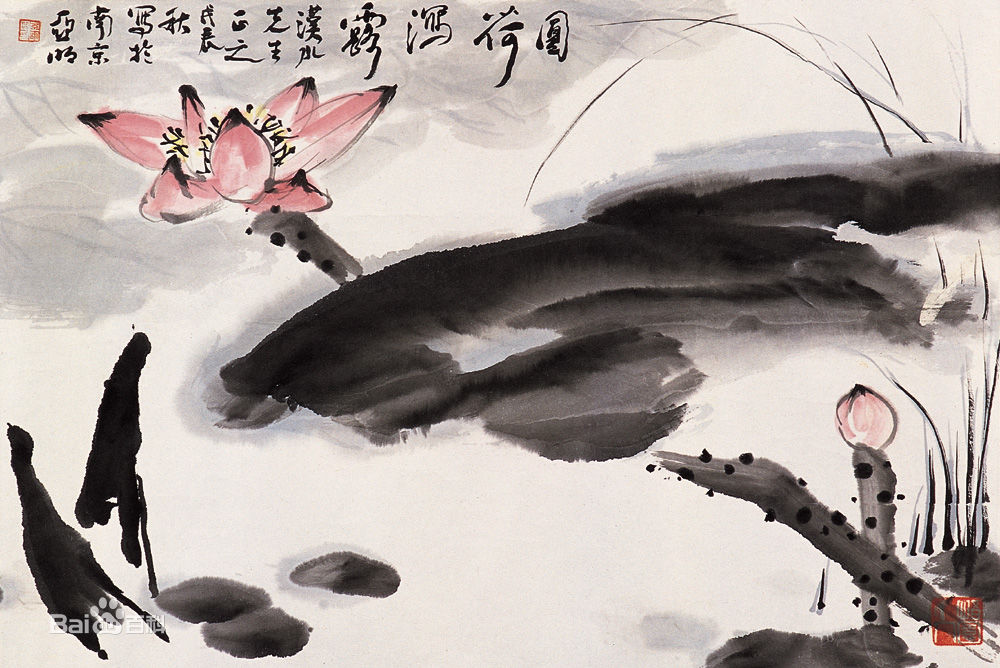 圓荷瀉露
漢水
先生
正之
戊辰
秋
寫於
南京
亞明
Bai百科